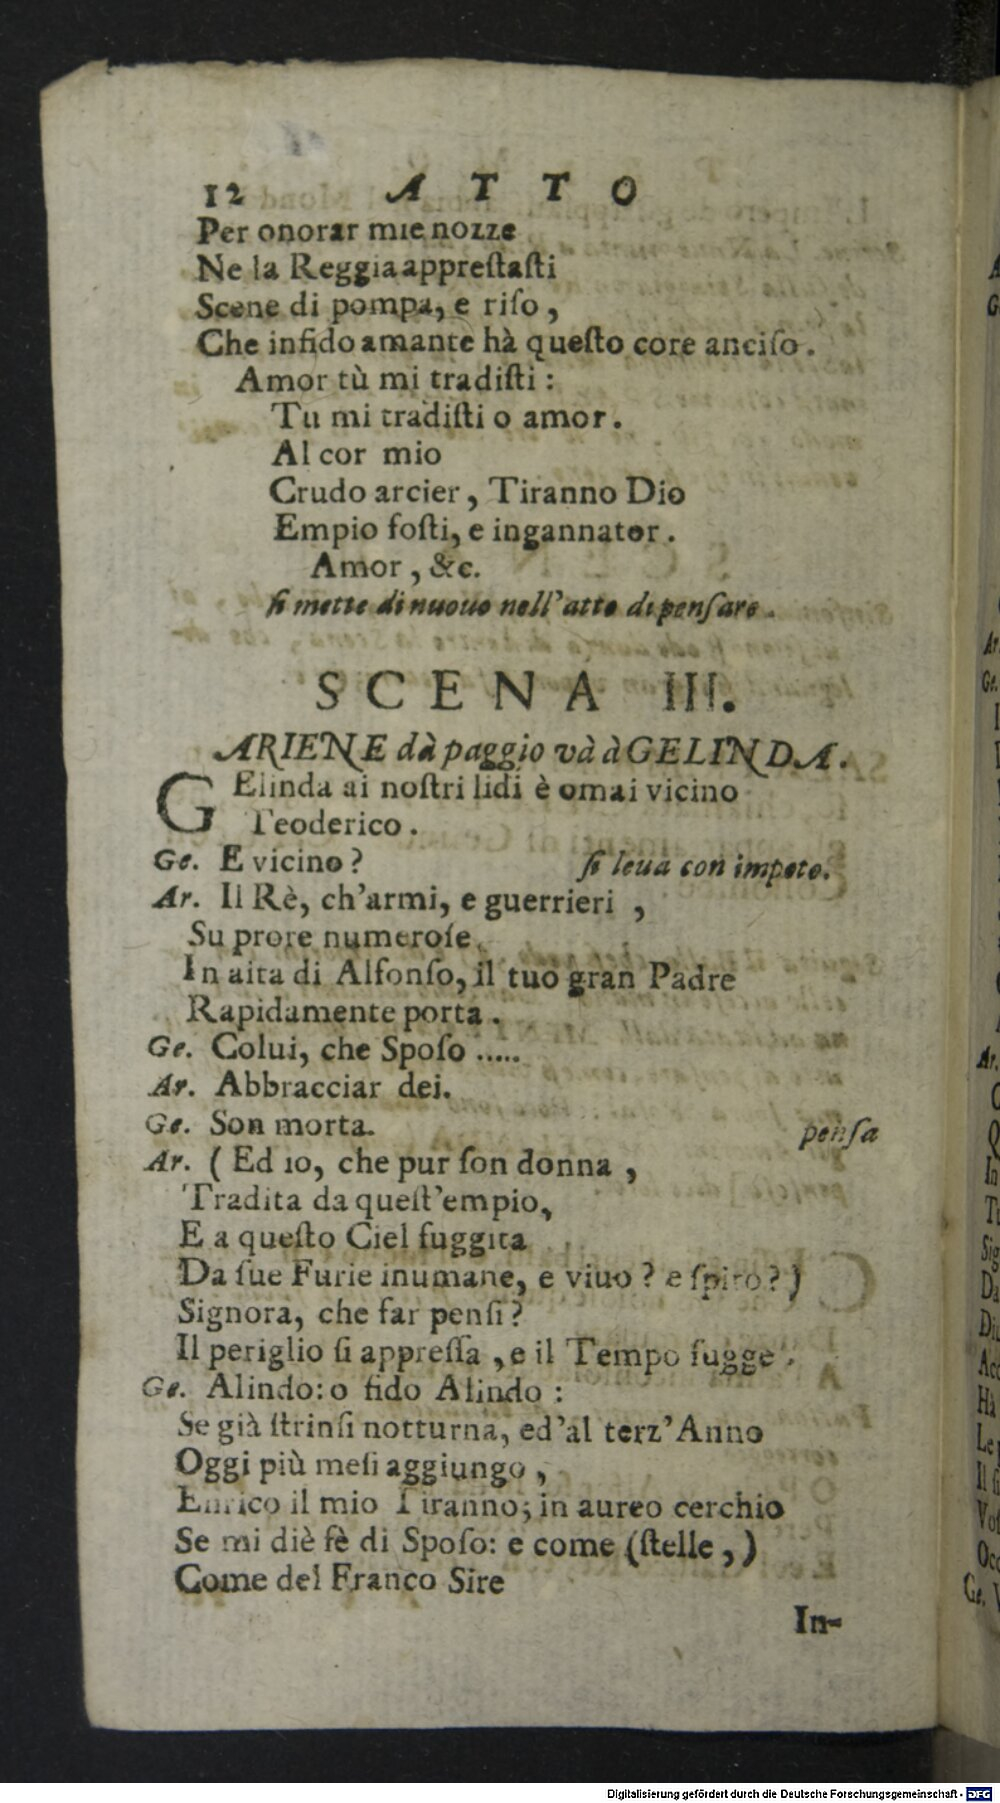 12 ATTO
Per onorar mie nozze
Ne la Reggia appreſtaſti
Scene di pompa, e riſo,
Che infido amante hà queſto core anciſo.
Amor tù mi tradiſti:
Tu mi tradiſti o amor.
Al cor mio
Crudo arcier, Tiranno Dio
Empio foſti, e ingannator.
Amor, &c.
ſi mette di nuouo nell'atto di penſare.
SCENA III.
ARIENE dà paggio và à GELINDA.
GElinda ai noſtri lidi è omai vicino
Teoderico.
Ge. E vicino? ſi leua con impeto.
Ar. Il Rè, ch'armi, e guerrieri,
Su prore numeroſe
In aita di Alfonſo, il tuo gran Padre
Rapidamente porta.
Ge. Colui, che Spoſo .....
Ar. Abbracciar dei.
Ge. Son morta. penſa
Ar. (Ed io, che pur ſon donna,
Tradita da queſt'empio,
E a queſto Ciel fuggita
Da ſue Furie inumane, e viuo? e ſpiro?)
Signora, che far penſi?
Il periglio ſi appreſſa, e il Tempo fugge.
Ge. Alindo: o fido Alindo:
Se già ſtrinſi notturna, ed'al terz'Anno
Oggi più meſi aggiungo,
Enrico il mio Tiranno; in aureo cerchio
Se mi diè fè di Spoſo: e come (ſtelle,)
Come del Franco Sire
In-
Digitalisierung gefördert durch die Deutsche Forschungsgemeinschaft - DFG